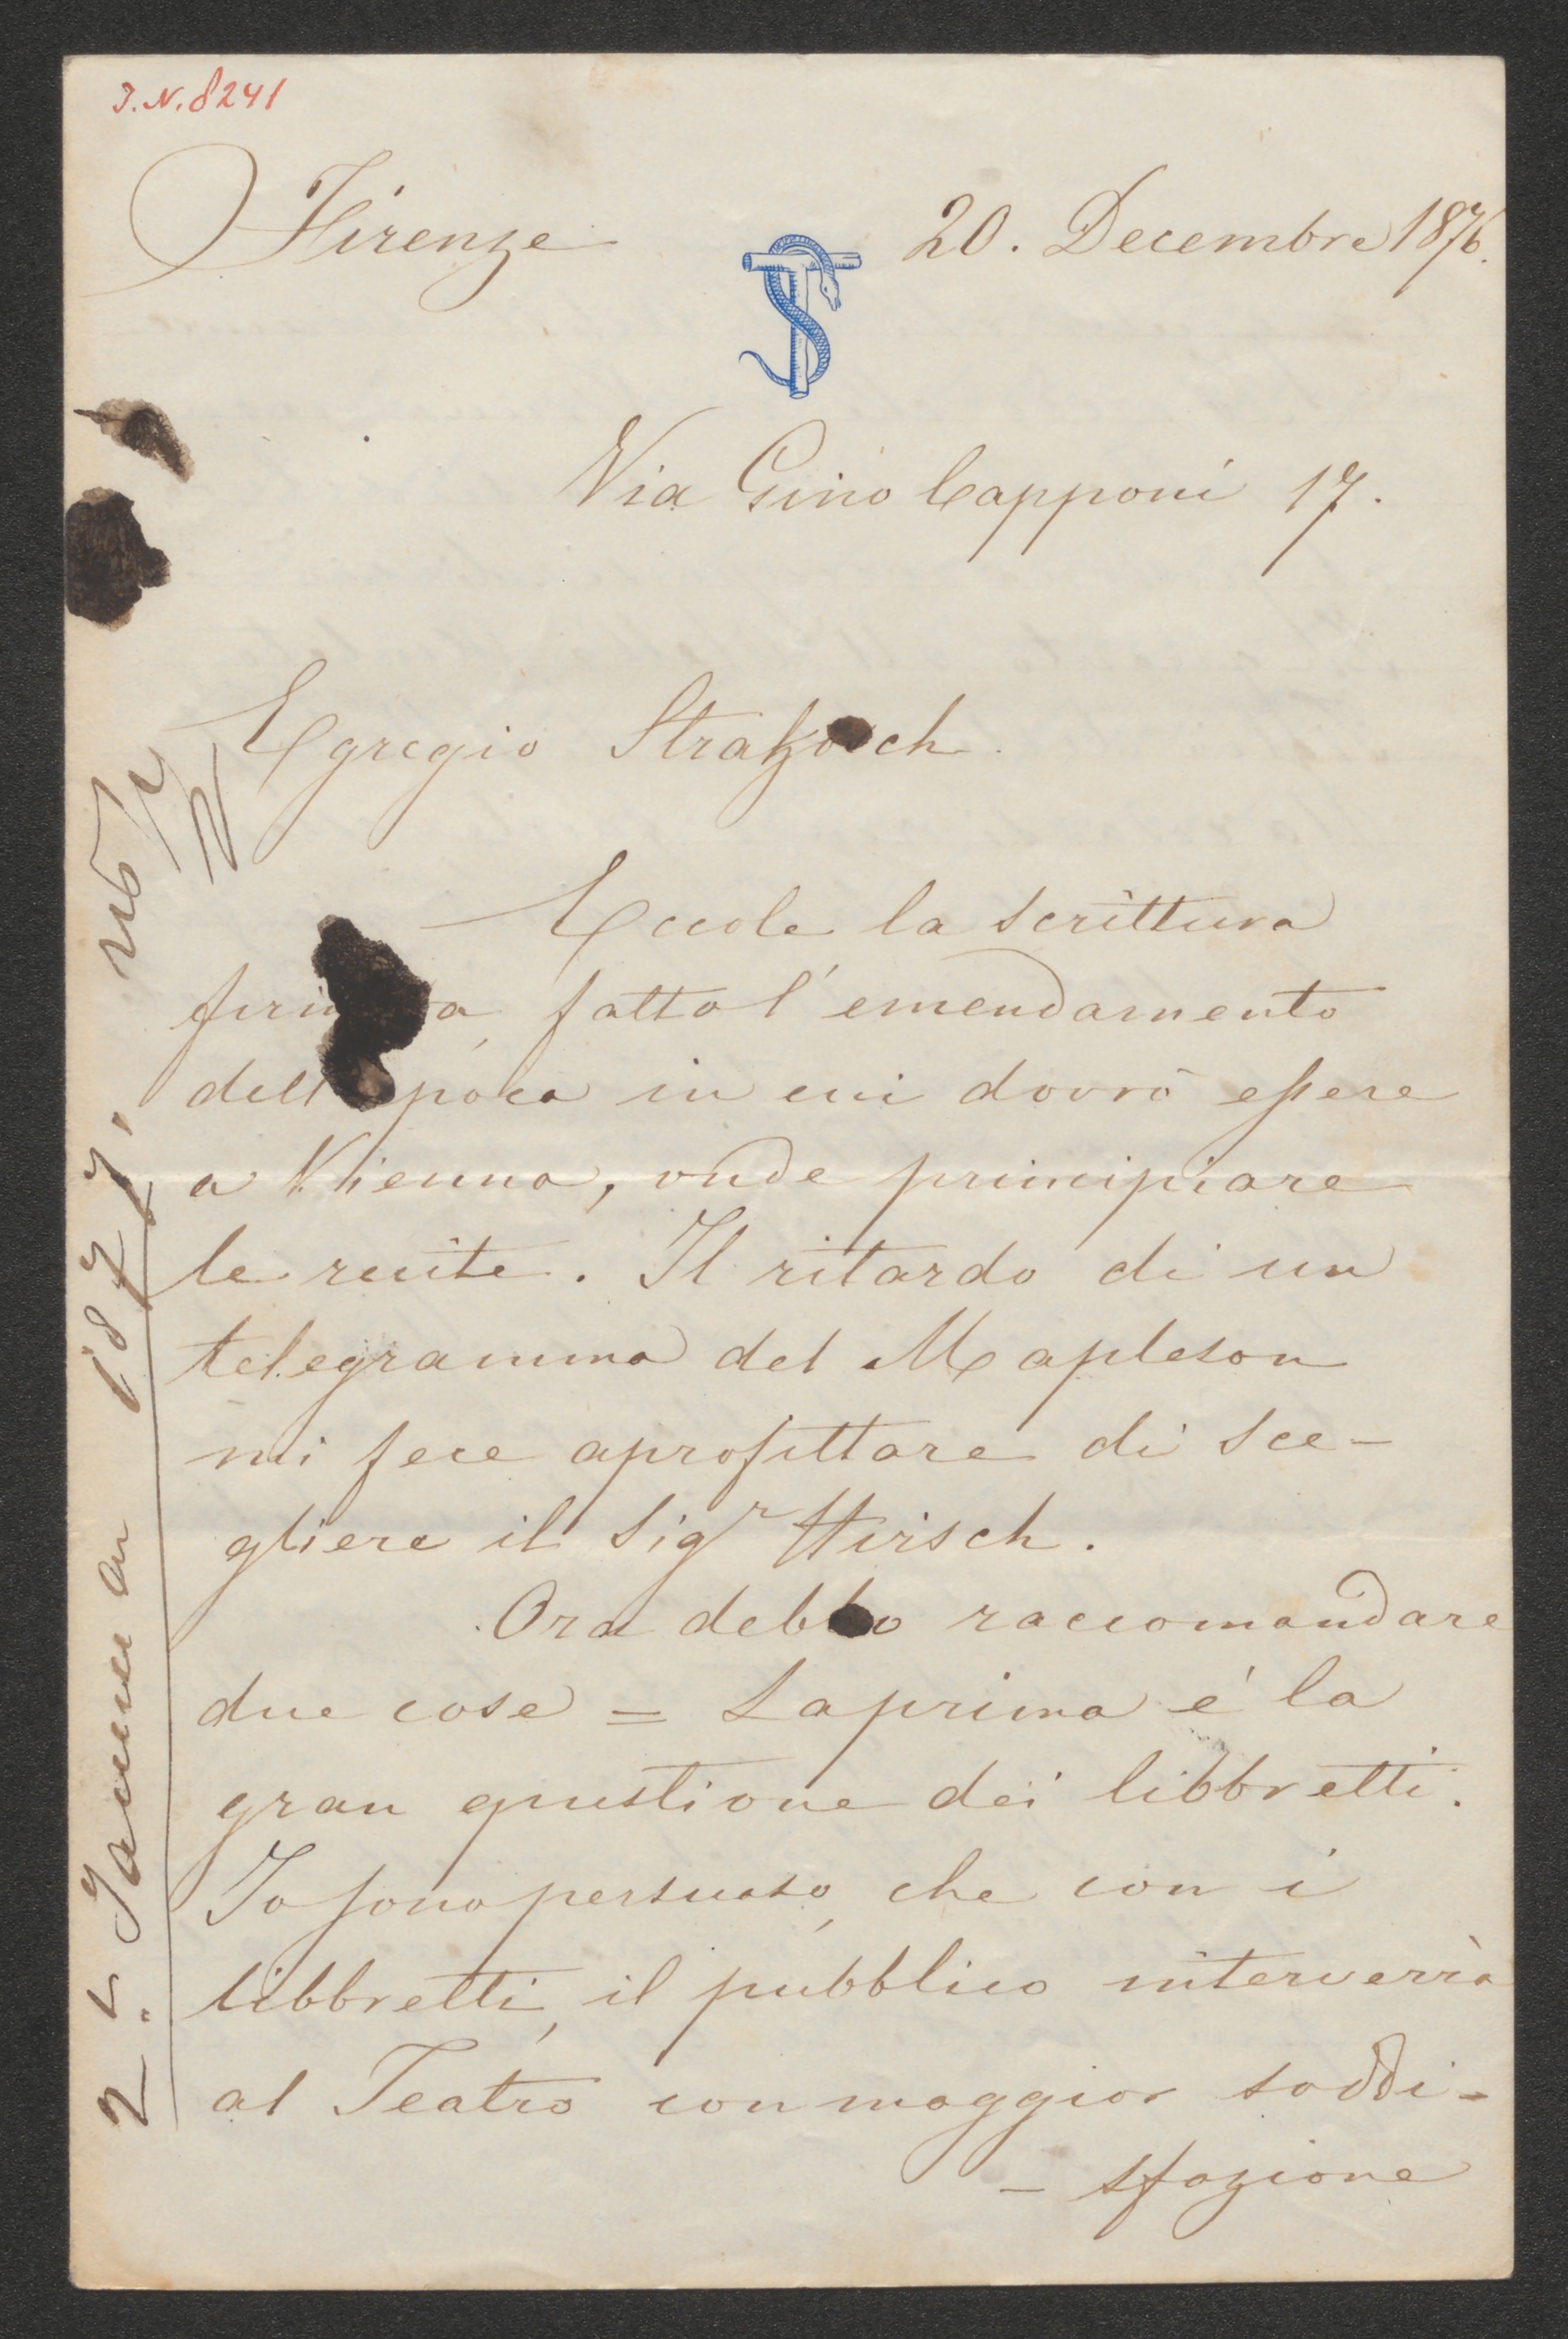 J.N. 8241
Firenze 20. Decembre 1876.
TS
Via Gino Capponi 17.
Egregio Strakosch.
Eccole la scrittura
fatto l'emendamento
dell'epoca in cui dovrò essere
a Vienna, onde principiare
le recite. Il ritardo di un
telegramma del Mapleson
mi fece aprofittare di sce-
gliere il Sigr Hirsch.
Ora debbo raccomandare
due cose = La prima é la
gran questione dei libbretti.
Io sono persuaso, che con i
libbretti, il pubblico interverrà
al Teatro con maggior soddi-
- sfazione
1877.